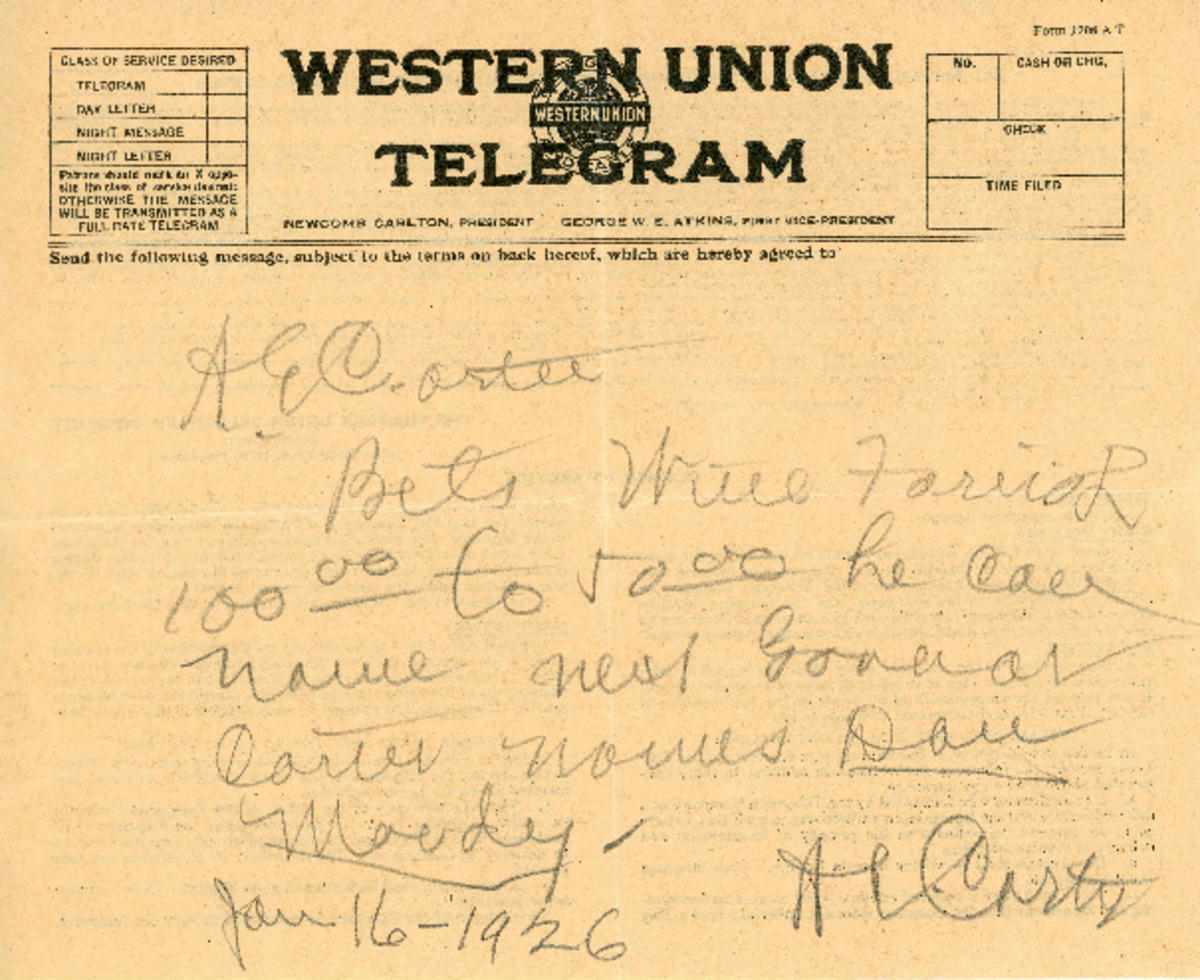 Form 1206 A T
CLASS OF SERVICE DESIRED
TELEGRAM
DAY LETTER
NIGHT MESSAGE
NIGHT LETTER
Patrons should mark an X oppo-
site the class of service desired:
OTHERWISE THE MESSAGE
WILL BE TRANSMITTED AS A
FULL-RATE TELEGRAM
WESTERN UNION
WESTERN UNION
TELEGRAM
NEWCOMB CARLTON, PRESIDENT GEORGE W. E. ATKINS, FIRST VICE-PRESIDENT
NO. CASH OR CHG.
CHECK
TIME FILED
Send the following message, subject to the terms on back hereof, which are hereby agreed to
A E Carter
Bets
100 00 to 50 00 he can
name next Governor
Carter names Dan
Moody
A E Carter
Jan 16-1926